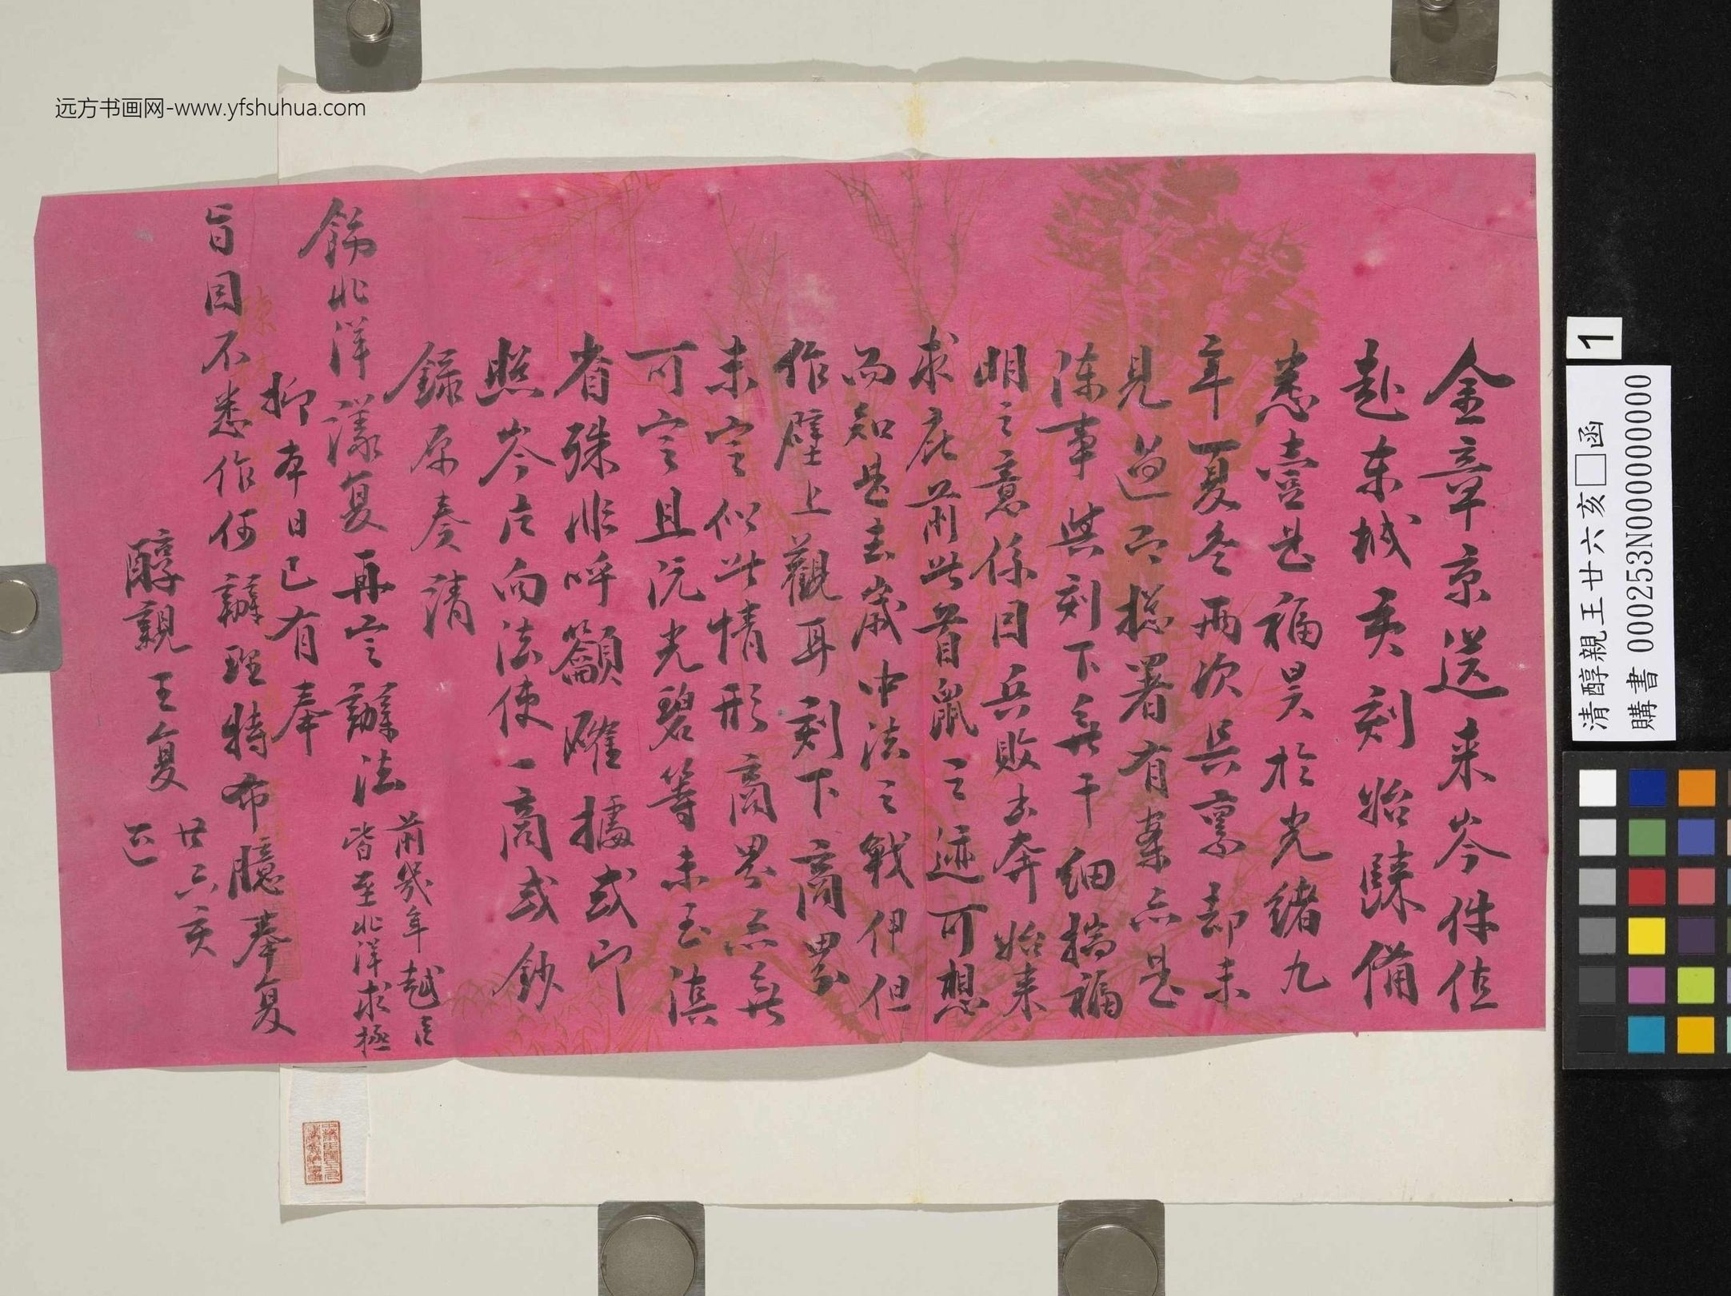 远方书画网-www.yfshuhua.com
金章京送来岑件值
赴东城亥刻始歸備
悉壹是福昊於光緒九
年夏冬兩次具禀却未
見過而總署有案亦是
陳事與刻下無干細揣福
明之意係因兵敗去奔始来
求庇前此首鼠之迹可想
而知是去歲中法之戰伊但
作壁上觀耳刻下商界
未定似此情形商界亦無
可定且沅光碧等未至滇
省殊非呼籲確據或即
照岑片向法使一商或鈔
錄原奏請
飭北洋議复再定辦法
前幾年越
皆至北洋求極
抑本日已有奉
旨因不悉作何辦理特布臆奉复
廿六亥
醇親王复
正
1
清醇親王廿六亥□函
購書 000253N000000000